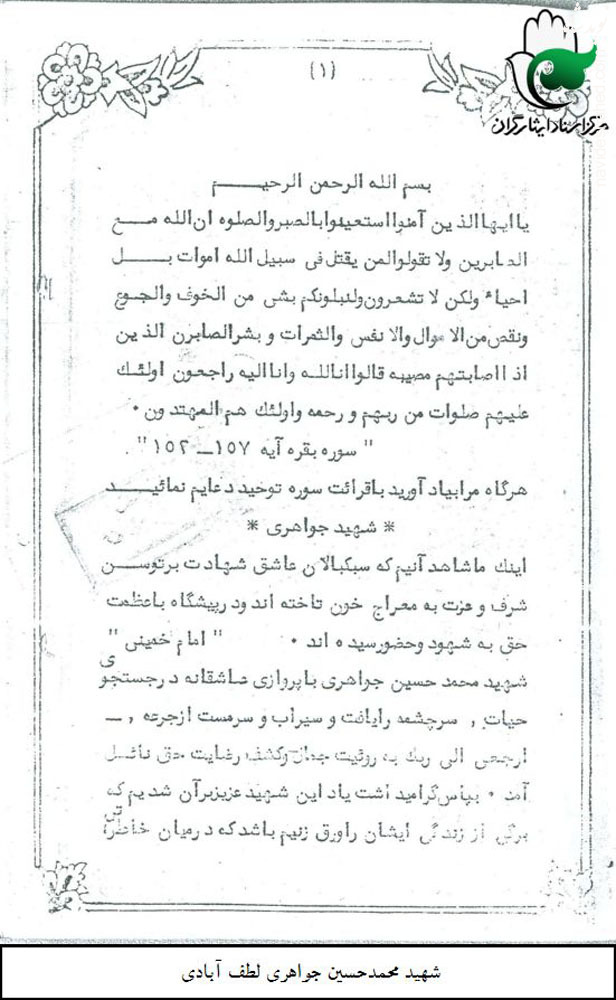 (۱)
مرکز اسناد ایثارگران
بسم الله الرحمن الرحیم
یا ایها الذین آمنوا استعینوا بالصبر والصلوه ان الله مع
الصابرین ولا تقولوا لمن یقتل فی سبیل الله اموات بل
احیاء ولکن لا تشعرون ولنبلونکم بشی من الخوف والجوع
ونقص من الاموال والانفس والثمرات و بشر الصابرن الذین
اذا اصابتهم مصیبه قالوا انالله وانا الیه راجعون اولئک
علیهم صلوات من ربهم و رحمه واولئک هم المهتدون ۰
" سوره بقره آیه ۱۵۷ــ ۱۵۲ " .
هرگاه مرا بیاد آورید باقرائت سوره توحید دعایم نمائید
* شهید جواهری *
اینک ما شاهد آنیم که سبکبالان عاشق شهادت برتوسن
شرف و عزت به معراج خون تاخته اند و درپیشگاه باعظمت
حق به شهود وحضور رسیده اند ۰ " امام خمینی "
شهید محمد حسین جواهری باپروازی عاشقانه در جستجوی
حیات , سرچشمه را یافت و سیراب و سرمست از جرعه , ــ
ارجعی الی ربک به روئیت جمال وکشف رضایت حق نائل
آمد ۰ بپاس گرامیداشت یاد این شهید عزیز برآن شدیم که
برگی از زندگی ایشان را ورق زنیم باشد که در میان خاطراتش
شهید محمدحسین جواهری لطف آبادی